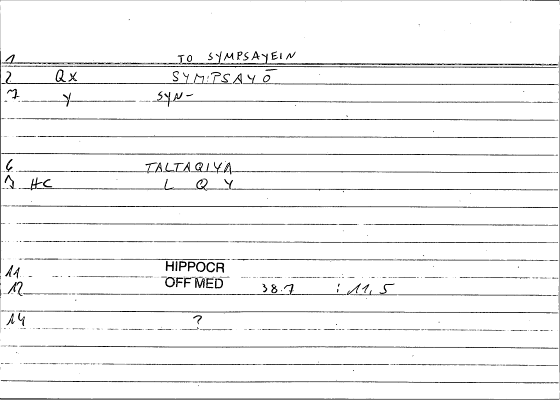 1 TO SYMPSAYEIN
2 QX SYMPSAYŌ
3 Y SYN-
6 TALTAQIYA
7 HC L Q Y
11 HIPPOCR
12 OFF MED 38.7 : 11, 5
14 ?